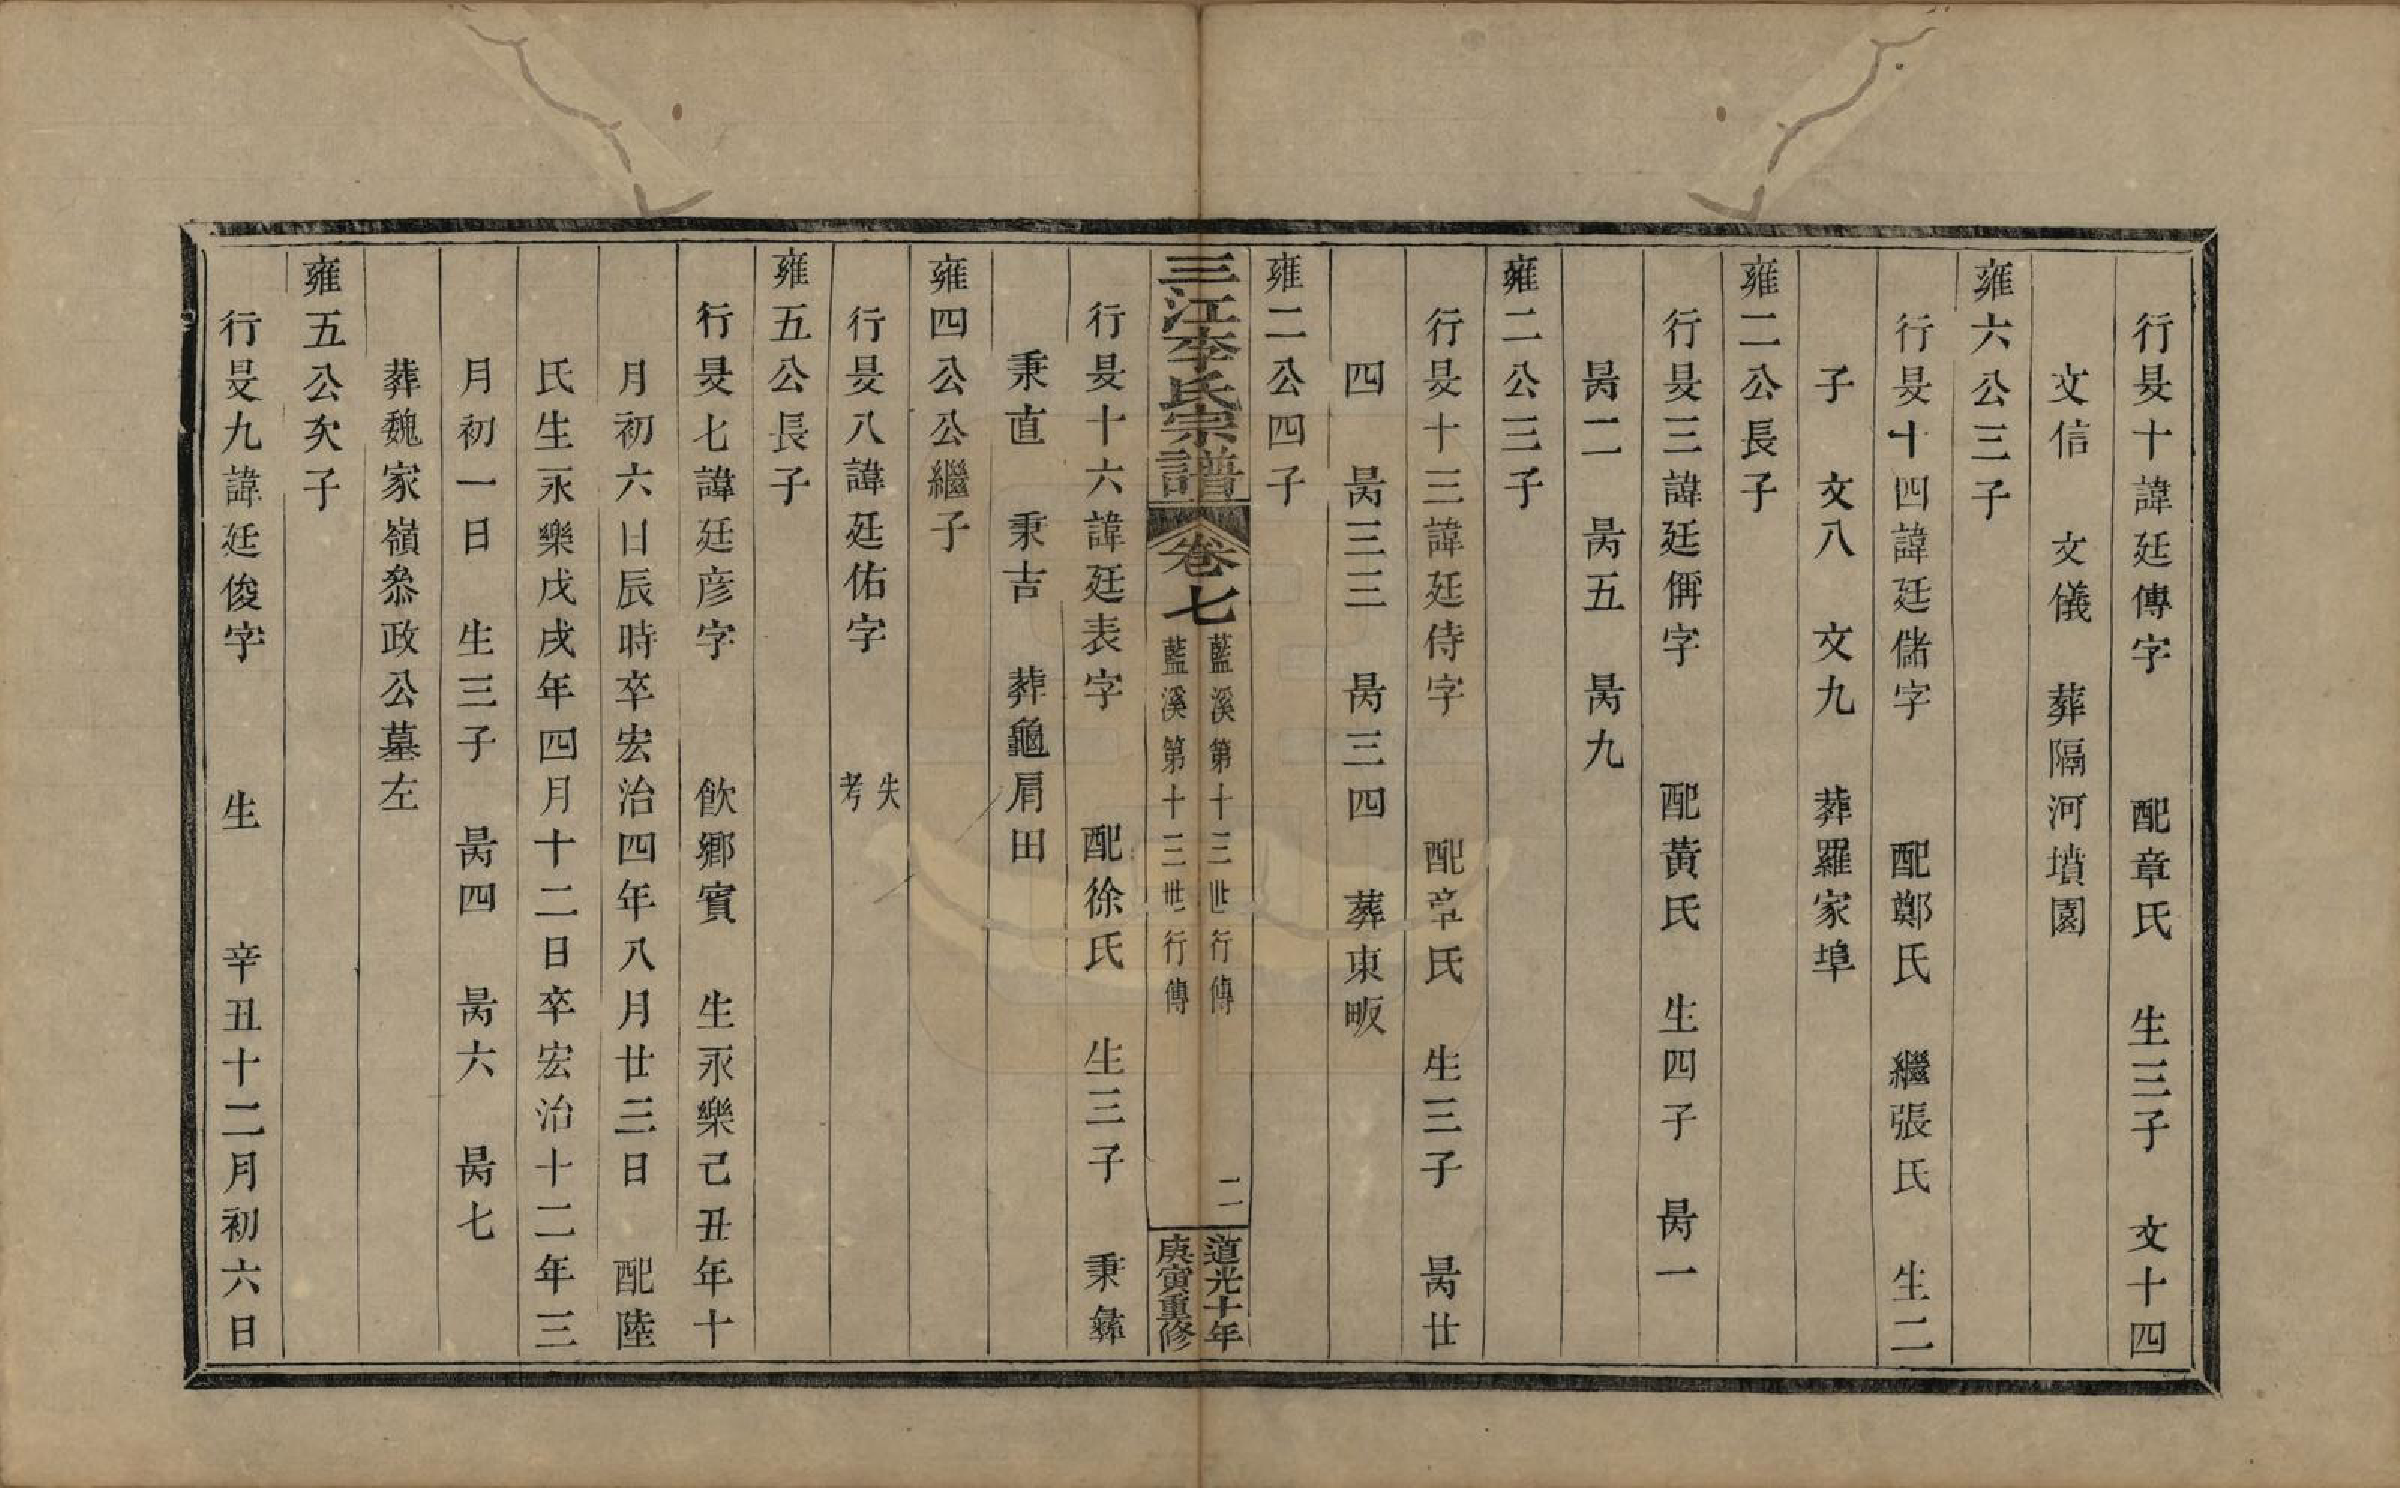 行旻十諱廷傳字　配章氏　生三子　文十四
文信　文儀　葬隔河墳園
雍六公三子
行旻十四諱廷儲字　配鄭氏　繼張氏　生二
子　文八　文九　葬羅家埠
雍二公長子
行旻三諱廷偁字　配黃氏　生四子　昺一
昺二　昺五　昺九
雍二公三子
行旻十三諱廷侍字　配章氏　生三子　昺廿
四　昺三三　昺三四　葬東畈
雍二公四子
三江李氏宗譜　卷七
藍溪第十三世行傳
藍溪第十三世行傳
二
道光十年
庚寅重修
行旻十六諱廷表字　配徐氏　生三子　秉彝
秉直　秉吉　葬龜肩田
雍四公公繼子
行旻八諱廷佑字　失考
雍五公長子
行旻七諱廷彦字　飲鄉賓　生永樂己丑年十
月初六日辰時卒宏治四年八月廿三日　配陸
氏生永樂戊戌年四月十二日卒宏治十二年三
月初一日　生三子　昺四　昺六　昺七
葬魏家嶺叅政公墓左
雍五公次子
行旻九諱廷俊字　生　辛丑十二月初六日